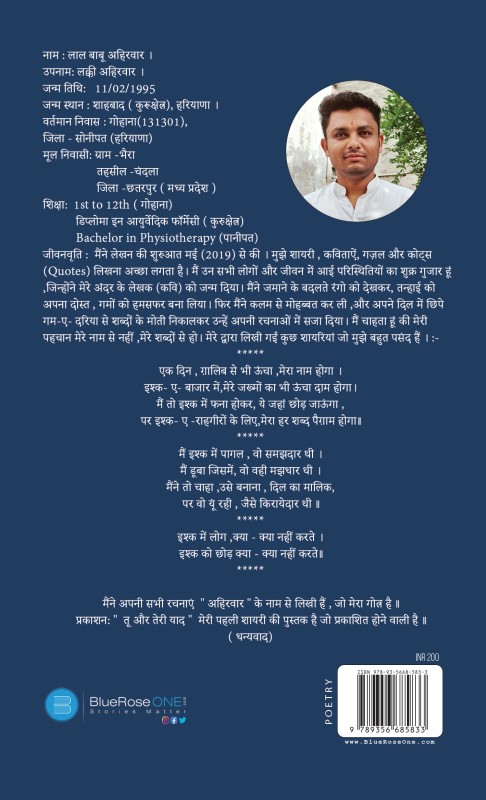 नाम : लाल बाबू अहिरवार ।
उपनाम: लक्की अहिरवार ।
जन्म तिथि: 11/02/1995
जन्म स्थान : शाहबाद ( कुरुक्षेत्र), हरियाणा ।
वर्तमान निवास : गोहाना(131301),
जिला - सोनीपत (हरियाणा)
मूल निवासी: ग्राम -भैरा
तहसील -चंदला
जिला -छतरपुर ( मध्य प्रदेश )
शिक्षा: 1st to 12th ( गोहाना)
डिप्लोमा इन आयुर्वेदिक फॉर्मेसी ( कुरुक्षेत्र)
Bachelor in Physiotherapy (पानीपत)
जीवनवृति : मैंने लेखन की शुरुआत मई (2019) से की । मुझे शायरी , कविताऐं, गज़ल और कोट्स
(Quotes) लिखना अच्छा लगता है। मैं उन सभी लोगों और जीवन में आई परिस्थितियों का शुक्र गुजार हूं
,जिन्होंने मेरे अंदर के लेखक (कवि) को जन्म दिया। मैंने जमाने के बदलते रंगो को देखकर, तन्हाई को
अपना दोस्त , गमों को हमसफर बना लिया। फिर मैंने कलम से मोहब्बत कर ली ,और अपने दिल में छिपे
गम-ए- दरिया से शब्दों के मोती निकालकर उन्हें अपनी रचनाओं में सजा दिया। मैं चाहता हूं की मेरी
पहचान मेरे नाम से नहीं ,मेरे शब्दों से हो। मेरे द्वारा लिखी गईं कुछ शायरियां जो मुझे बहुत पसंद हैं । :-
*****
एक दिन , ग़ालिब से भी ऊंचा ,मेरा नाम होगा ।
इश्क- ए- बाजार में,मेरे जख्मों का भी ऊंचा दाम होगा।
मैं तो इश्क में फना होकर, ये जहां छोड़ जाऊंगा ,
पर इश्क- ए -राहगीरों के लिए,मेरा हर शब्द पैग़ाम होगा॥
*****
मैं इश्क में पागल , वो समझदार थी ।
मैं डूबा जिसमें, वो वही मझधार थी ।
मैंने तो चाहा ,उसे बनाना , दिल का मालिक,
पर वो यूं रही , जैसे किरायेदार थी ॥
*****
इश्क में लोग ,क्या - क्या नहीं करते ।
इश्क को छोड़ क्या - क्या नहीं करते॥
*****
मैंने अपनी सभी रचनाएं " अहिरवार " के नाम से लिखी हैं , जो मेरा गोत्र है ॥
प्रकाशन: " तू और तेरी याद " मेरी पहली शायरी की पुस्तक है जो प्रकाशित होने वाली है ॥
( धन्यवाद)
INR 200
POETRY
ISBN 978-93-5668-583-3
9 789356 685833
www.BlueRoseOne.com
BlueRoseONE
Stories Matter